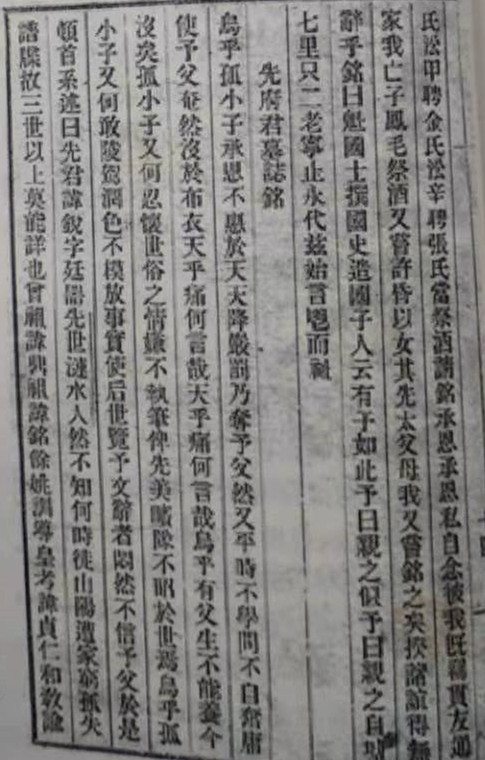 氏淞甲聘金氏淞辛聘張氏當祭酒請銘承恩承恩私自念彼我既竊貫友通
家我亡子鳳毛祭酒又嘗許昏以女其先太父母我又嘗銘之矣揆諸誼得無
辭乎銘曰魁國士撰國史造國子人云有子如此予曰親之似予曰親之自
七里只二老寧止永代茲始言罔而
先府君墓誌銘
烏乎孤小子承恩不惠於天天降嚴罰乃奪予父然又平時不學問不自奮庸
使予父奄然沒於布衣天乎痛何言哉天乎痛何言哉烏乎有父生不能養今
沒矣孤小子又何忍懷世俗之情嫌不執筆俾先美曖隊不昭於世焉烏乎孤
小子又何敢陵駕潤色不模放事實使后世覽予文辭者悶然不信予父於是
頓首系述曰先君諱銳字廷器先世漣水人然不知何時徙山陽遭家窮孤失
譜牒故三世以上莫能詳也曾祖諱鼎祖諱銘餘姚訓導皇考諱貞仁和教諭